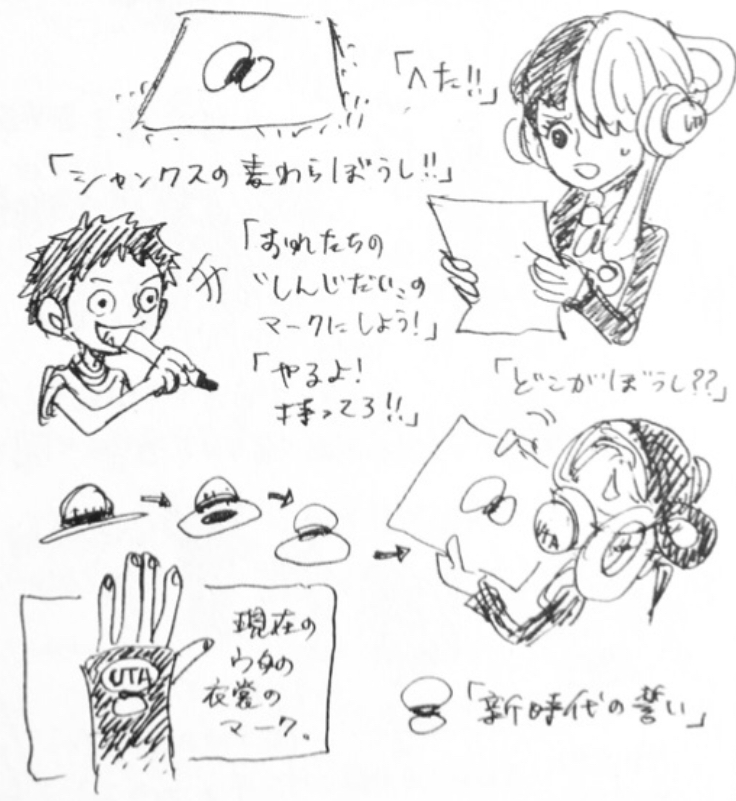 「ヘた!!」
UTA
「シャンクスの麦わらぼうし!!」
「おれたちの
"しんじだい"の
マークにしよう!」
「やるよ!
持ってろ!!」
「どこがぼうし??」
UTA
UTA
現在の
ウタの
衣裳の
マーク。
「新時代の誓い」